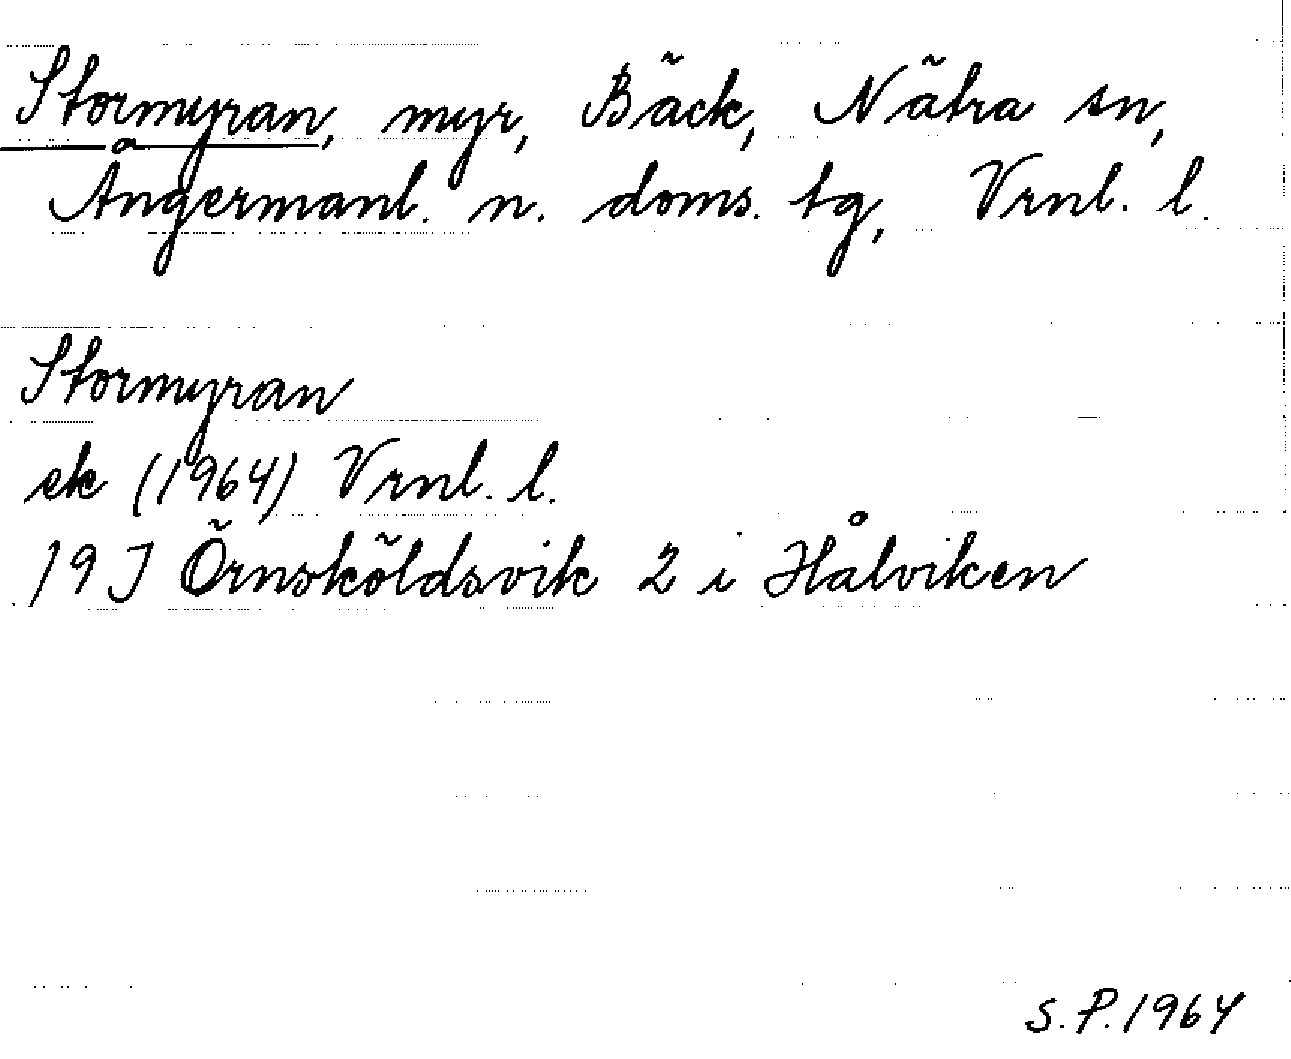 Stormyran, myr, Bäck, Nätra sn,
Ångermanl. n. doms. tg, Vrnl. l.
Stormyran
ek (1964) Vrnl. l.
19 J Örnsköldsvik 2 i Hålviken
S.P. 1964